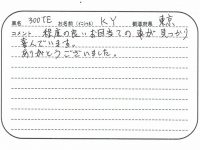 車名 300TE お名前(イニシャル) KY 都道府県 東京
コメント 程度の良いお目当ての車が見つかり
喜んでいます。
ありがとうございました。